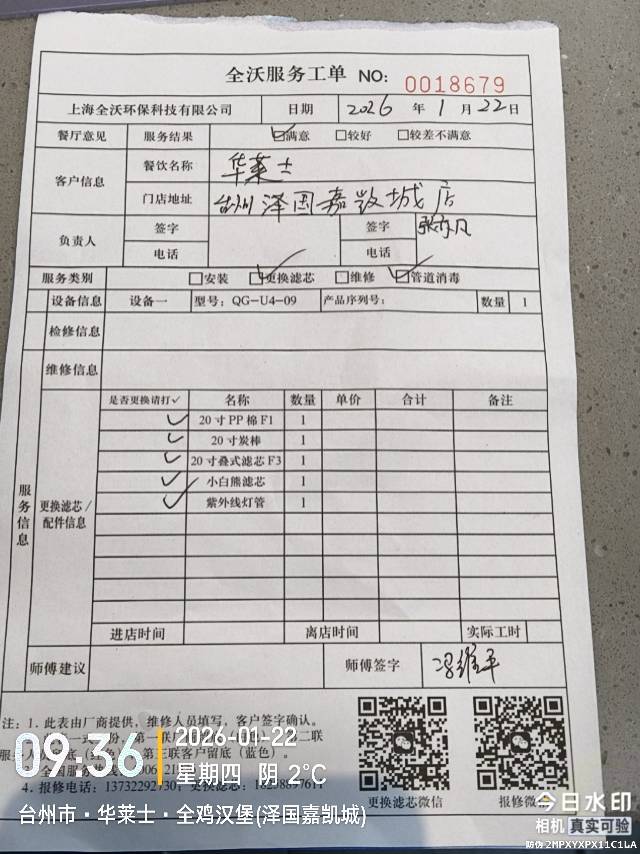 全沃服务工单 NO: 0018679
上海全沃环保科技有限公司 日期 2026 年 1 月 22 日
餐厅意见 服务结果 ☑满意 □较好 □较差不满意
客户信息 餐饮名称 华莱士
门店地址 台州泽国嘉凯城店
负责人 签字 签字
电话 电话
服务类别 □安装 ☑更换滤芯 □维修 ☑管道消毒
设备信息 设备一 型号: QG-U4-09 产品序列号: 数量 1
检修信息
维修信息
服务信息
更换滤芯/配件信息
是否更换请打✓ 名称 数量 单价 合计 备注
✓ 20寸PP棉F1 1
✓ 20寸炭棒 1
✓ 20寸叠式滤芯F3 1
✓ 小白熊滤芯 1
✓ 紫外线灯管 1
进店时间 离店时间 实际工时
师傅建议 师傅签字 冯维平
注: 1. 此表由厂商提供，维修人员填写，客户签字确认。
第三联客户留底（蓝色）。
全国服务
4. 报修电话: 13732292730;
更换滤芯微信 报修微信
09:36 2026-01-22
星期四 阴 2℃
台州市·华莱士·全鸡汉堡(泽国嘉凯城)
今日水印
相机 真实可验
防伪 2MPXYXPX11C1LA